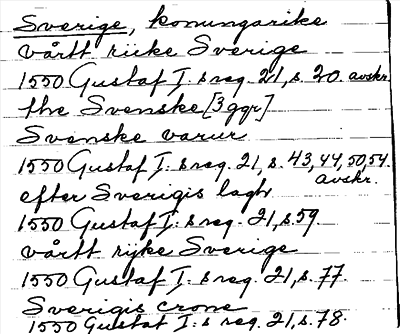 Sverige, konungarike
vårtt riike Sverige
1550 Gustaf I:s reg. 21, s. 20. avskr.
the Svenske [3 ggr]
Svenske varur
1550 Gustaf I:s reg. 21, s. 43, 44, 50, 54.
avskr.
efter Sverigis lagh
1550 Gustaf I:s reg. 21, s. 59
vårtt rijke Sverige
1550 Gustaf I:s reg. 21, s. 77.
Sverigis crone
1550 Gustaf I:s reg. 21, s. 78.